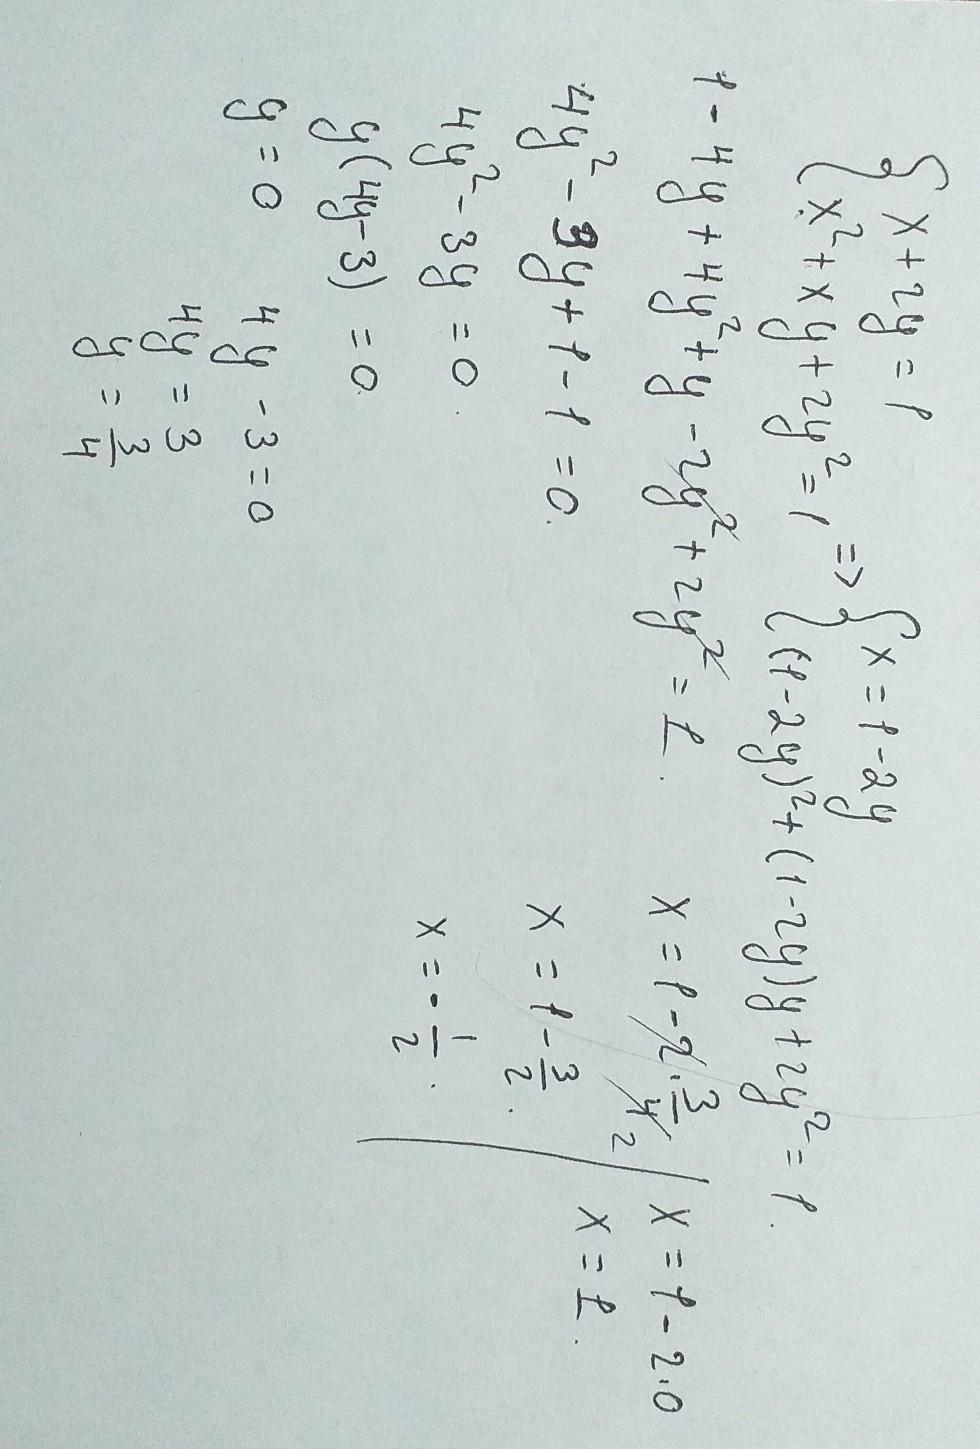 { x + 2y = 1
{ x² + xy + 2y² = 1 => { x = 1 - 2y
{ (1 - 2y)² + (1 - 2y)y + 2y² = 1.
1 - 4y + 4y² + y - 2y² + 2y² = 1.
4y² - 3y + 1 - 1 = 0.
4y² - 3y = 0.
y(4y - 3) = 0.
y = 0
4y - 3 = 0
4y = 3
y = 3/4
x = 1 - 2 · 3/4 2
x = 1 - 3/2.
x = - 1/2.
x = 1 - 2·0
x = 1.